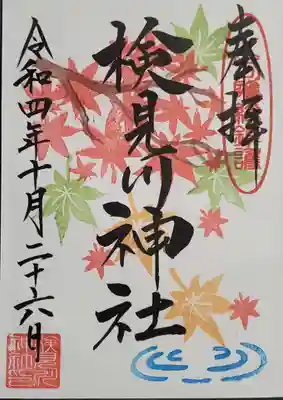 奉拝
検見川神社
令和四年十月二十六日